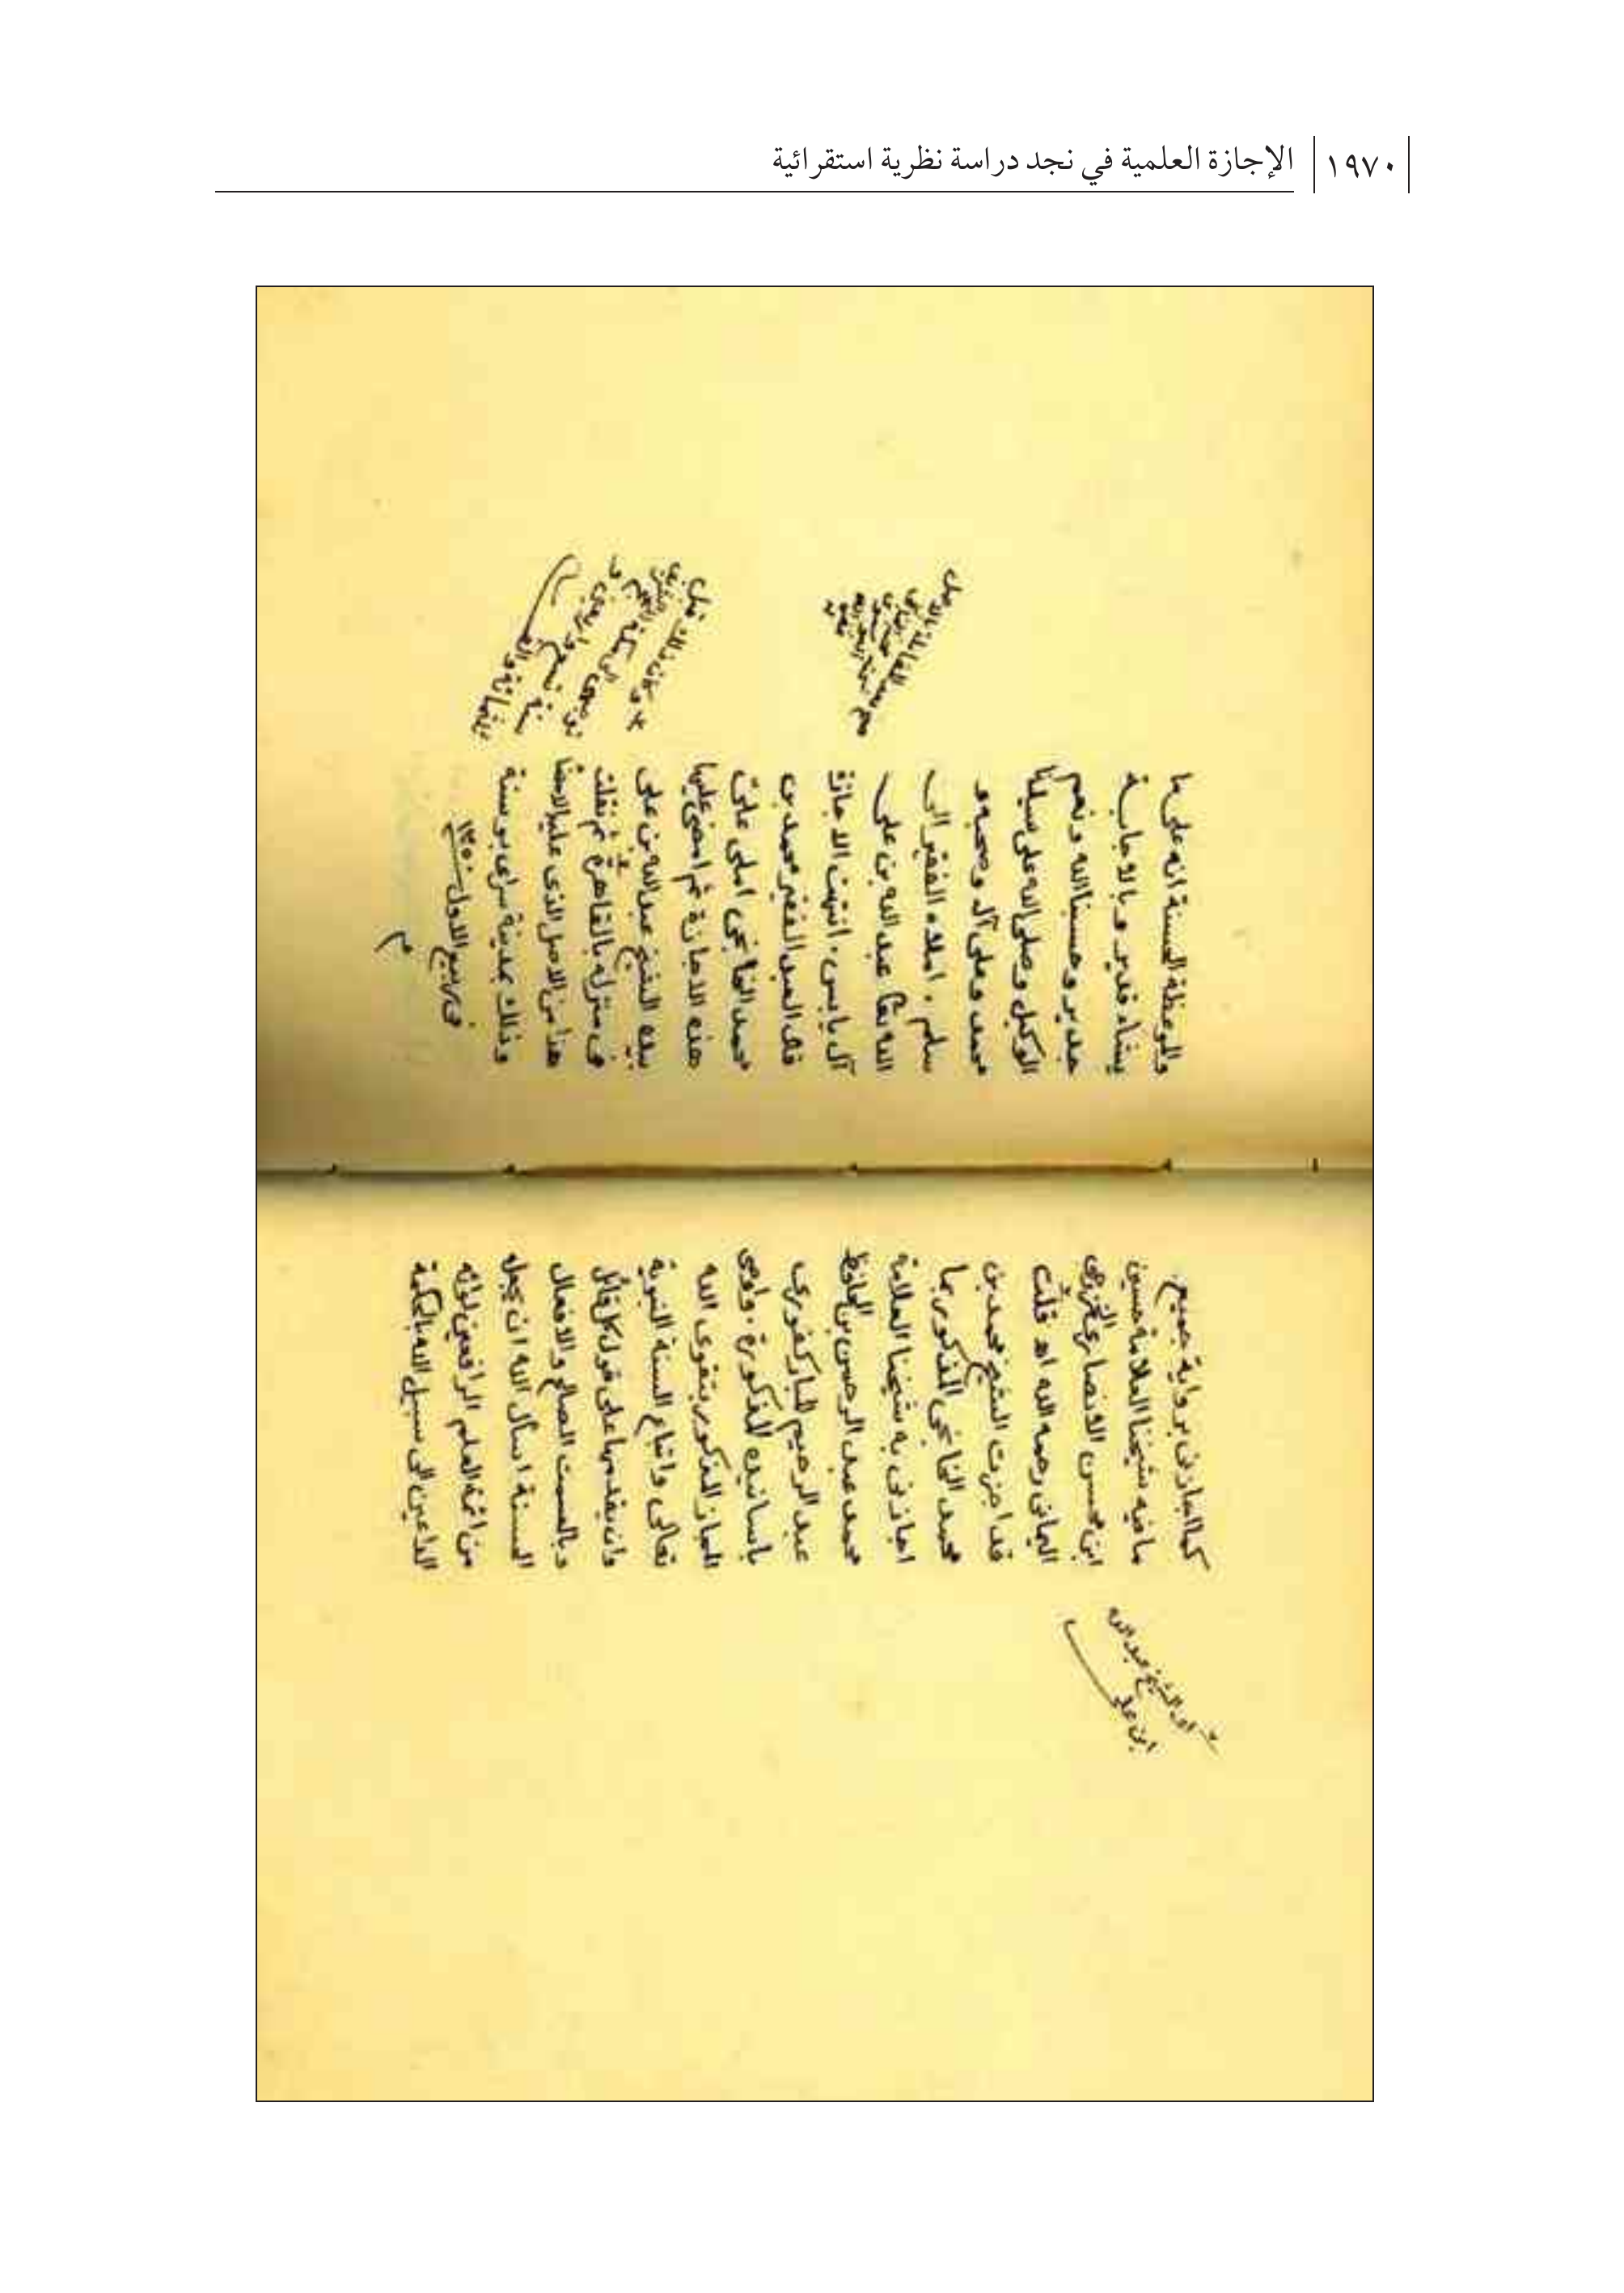 ١٩٧٠
الإجازة العلمية في نجد دراسة نظرية استقرائية
كما اجازنى برواية جميع
ما فيه شيخنا العلامة حسين
ابن محسن الانصارى الخزرجى
اليمانى رحمه الله اه قلت
قد اجزت الشيخ محمد بن
محمد الخانجى المذكور بما
اجازنى به شيخنا العلامة
محمد عبد الرحمن بن الحافظ
عبد الرحيم المباركفورى
باسانيده المذكورة. واوصى
المجاز المذكور بتقوى الله
تعالى واتباع السنة النبوية
وان يقدمها على قول كل قائل
وبالسمت الصالح والافعال
السنة اسأل الله ان يجعله
من ائمة العلم الرافعين لوائه
الداعين الى سبيل الله بالحكمة
اى الشيخ عبد الله
ابن على
والموعظة الحسنة انه على ما
يشاء قدير وبالاجابة
جدير وحسبنا الله ونعم
الوكيل وصلى الله على سيدنا
محمد وعلى آله وصحبه و
سلم. املاه الفقير الى
الله تعالى عبد الله بن على
آل يابس. انتهت الاجازة
قال العبد الفقير محمد بن
محمد الخانجى املى على
هذه الاجازة ثم امضى عليها
بيده الشيخ عبد الله بن على
فى منزله بالقاهرة ثم نقلت
هذا من الاصل الذى عليه الامضاء
وذلك بمدينة سراى بوسنة
فى ربيع الاول ١٣٥٠
م
وكان ذلك قبل
سنة تسع واربعين
وثلثمائة والف